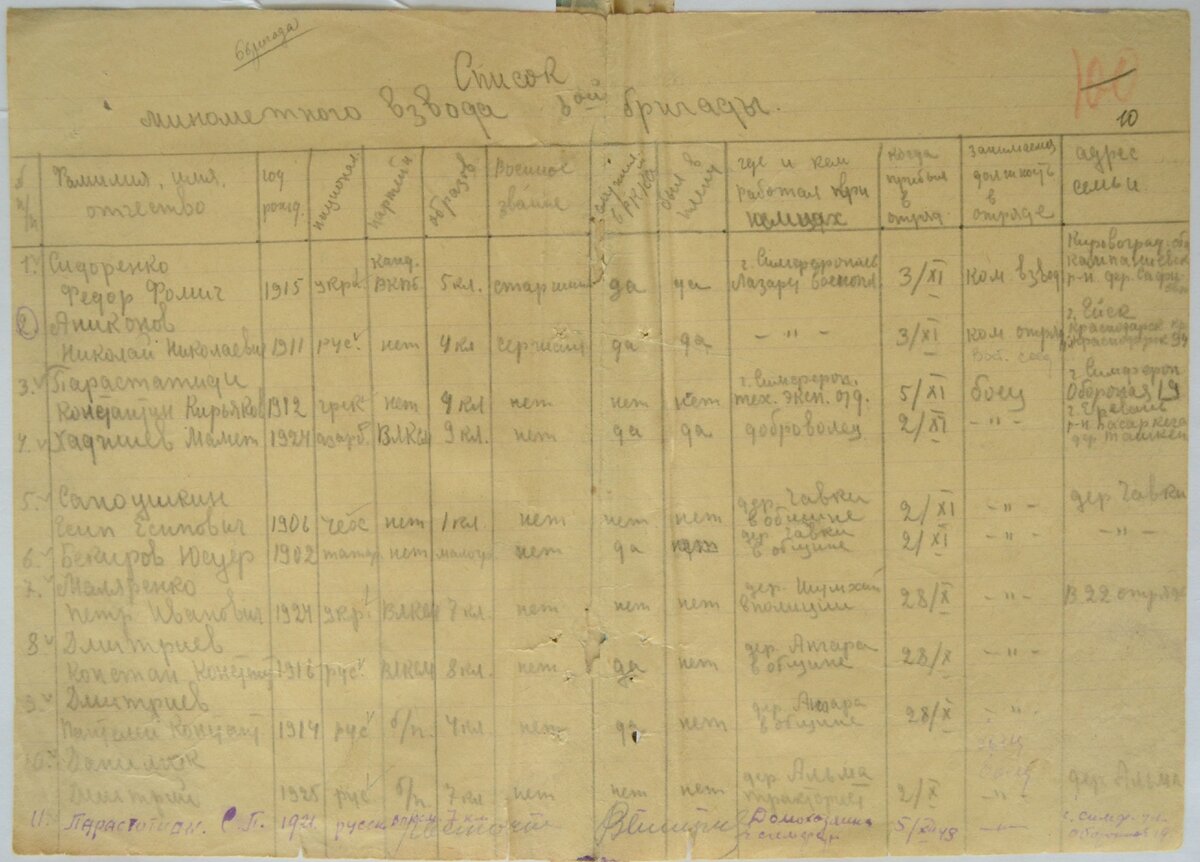 6 бригада
Список
минометного взвода 6ой бригады.
100
10
№ п/п | Фамилия, имя, отчество | год рожд. | национал. | партийн | образов. | Военное звание | служил в РККА | был в плену | где и кем работал при немцах | когда прибыл в отряд | занимаемая должность в отряде | адрес семьи
1. Сидоренко Федор Фомич | 1915 | укр. | канд. ВКПб | 5 кл. | старшин | да | да | г. Симферополь Лазарет | 3/XI | ком. взвод | Кировоград. обл р-н. дер.
2 Аниконов Николай Николаевич | 1911 | рус. | нет | 4 кл | сержант | да | да | – " – | 3/XI | ком отряд | г. Ейск Краснодарск кр.
3. Парастатиди Константин Кирьяков | 1912 | грек | нет | 4 кл | нет | нет | нет | г. Симфероп. тех. эксп. отд. | 5/XI | боец | г. Симфероп Оборонная 19
4. Хаджиев Мамет | 1924 | азарб | ВЛКСМ | 9 кл. | нет | да | да | доброволец | 2/XI | – " – | г. Еревань р-н дер.
5. Сапоушкин Есип Есипович | 1906 | чех | нет | 1 кл | нет | нет | нет | дер. Чавки в общине | 2/XI | – " – | дер. Чавки
6. Бекиров Юсуф | 1902 | татар | нет | малогр | нет | да | нет | дер. Чавки в общине | 2/XI | – " – | – " –
7. Маляренко Петр Иванович | 1924 | укр. | ВЛКСМ | 7 кл. | нет | нет | нет | дер. Шумхай в полиции | 28/X | – " – | В 22 отряде
8. Дмитриев Констан Констант | 1916 | рус. | ВЛКСМ | 8 кл. | нет | да | нет | дер. Ангара в общине | 28/X | – " –
9. Дмитриев Пантелей Констант | 1914 | рус | б/п. | 4 кл | нет | да | нет | дер. Ангара в общине | 28/X | – " –
боец
10. Данилюк Дмитрий | 1925 | рус | б/п | 7 кл | нет | нет | нет | дер. Альма тракторист | 2/X | боец – " – | дер. Альма
11. Парастотиди. С. П. | 192 | русск | 7 кл. | Домохозяйка г. симфер | 5/XII 43 | – " – | г. симф. Оборонная 19